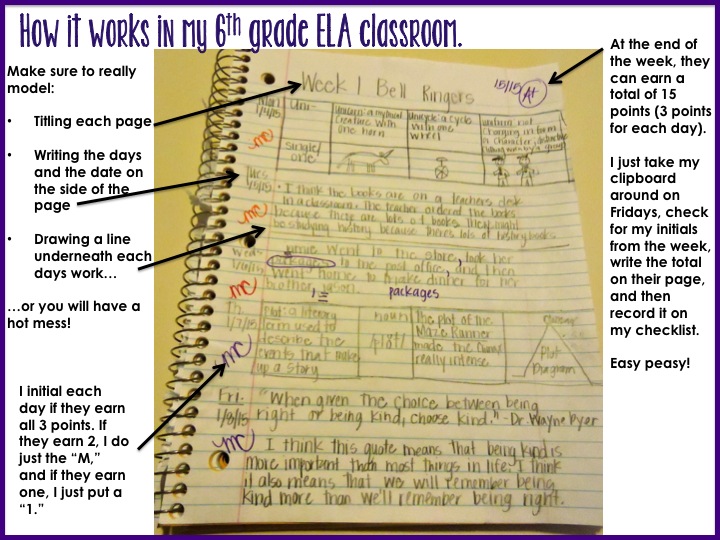 How it works in my 6th grade ELA classroom.
Make sure to really
model:
• Titling each page
• Writing the days
and the date on
the side of the
page
• Drawing a line
underneath each
days work…
…or you will have a
hot mess!
I initial each
day if they earn
all 3 points. If
they earn 2, I do
just the “M,”
and if they earn
one, I just put a
“1.”
Week 1 Bell Ringers
15/15 A+
Mon.
uni-
single/
one
unicorn: a mythical
creature with
one horn
unicycle: a cycle
with one
wheel
mc
Tues.
• I think the books are on a teachers desk
in a classroom. The teacher ordered the books
because there are lots of books. They ought
be studying history because theres lots of history books
mc
Weds.
went to the store, took her
to the post office, and then
went home to make dinner for her
brother, jason.
packages
mc
Th.
1/7/15
Plot: a literary
term used to
describe the
events that make
up a story
noun
/plŏt/
The plot of the
Maze Runner
made the
really intense.
Plot
Diagram
mc
Fri.
1/8/15
"When given the choice between being
right or being kind, choose kind." -Dr. Wayne Dyer
mc
I think this quote means that being kind is
more important than most things in life. I think
it also means that we will remember being
kind more than we'll remember being right.
At the end of
the week, they
can earn a
total of 15
points (3 points
for each day).
I just take my
clipboard
around on
Fridays, check
for my initials
from the week,
write the total
on their page,
and then
record it on
my checklist.
Easy peasy!